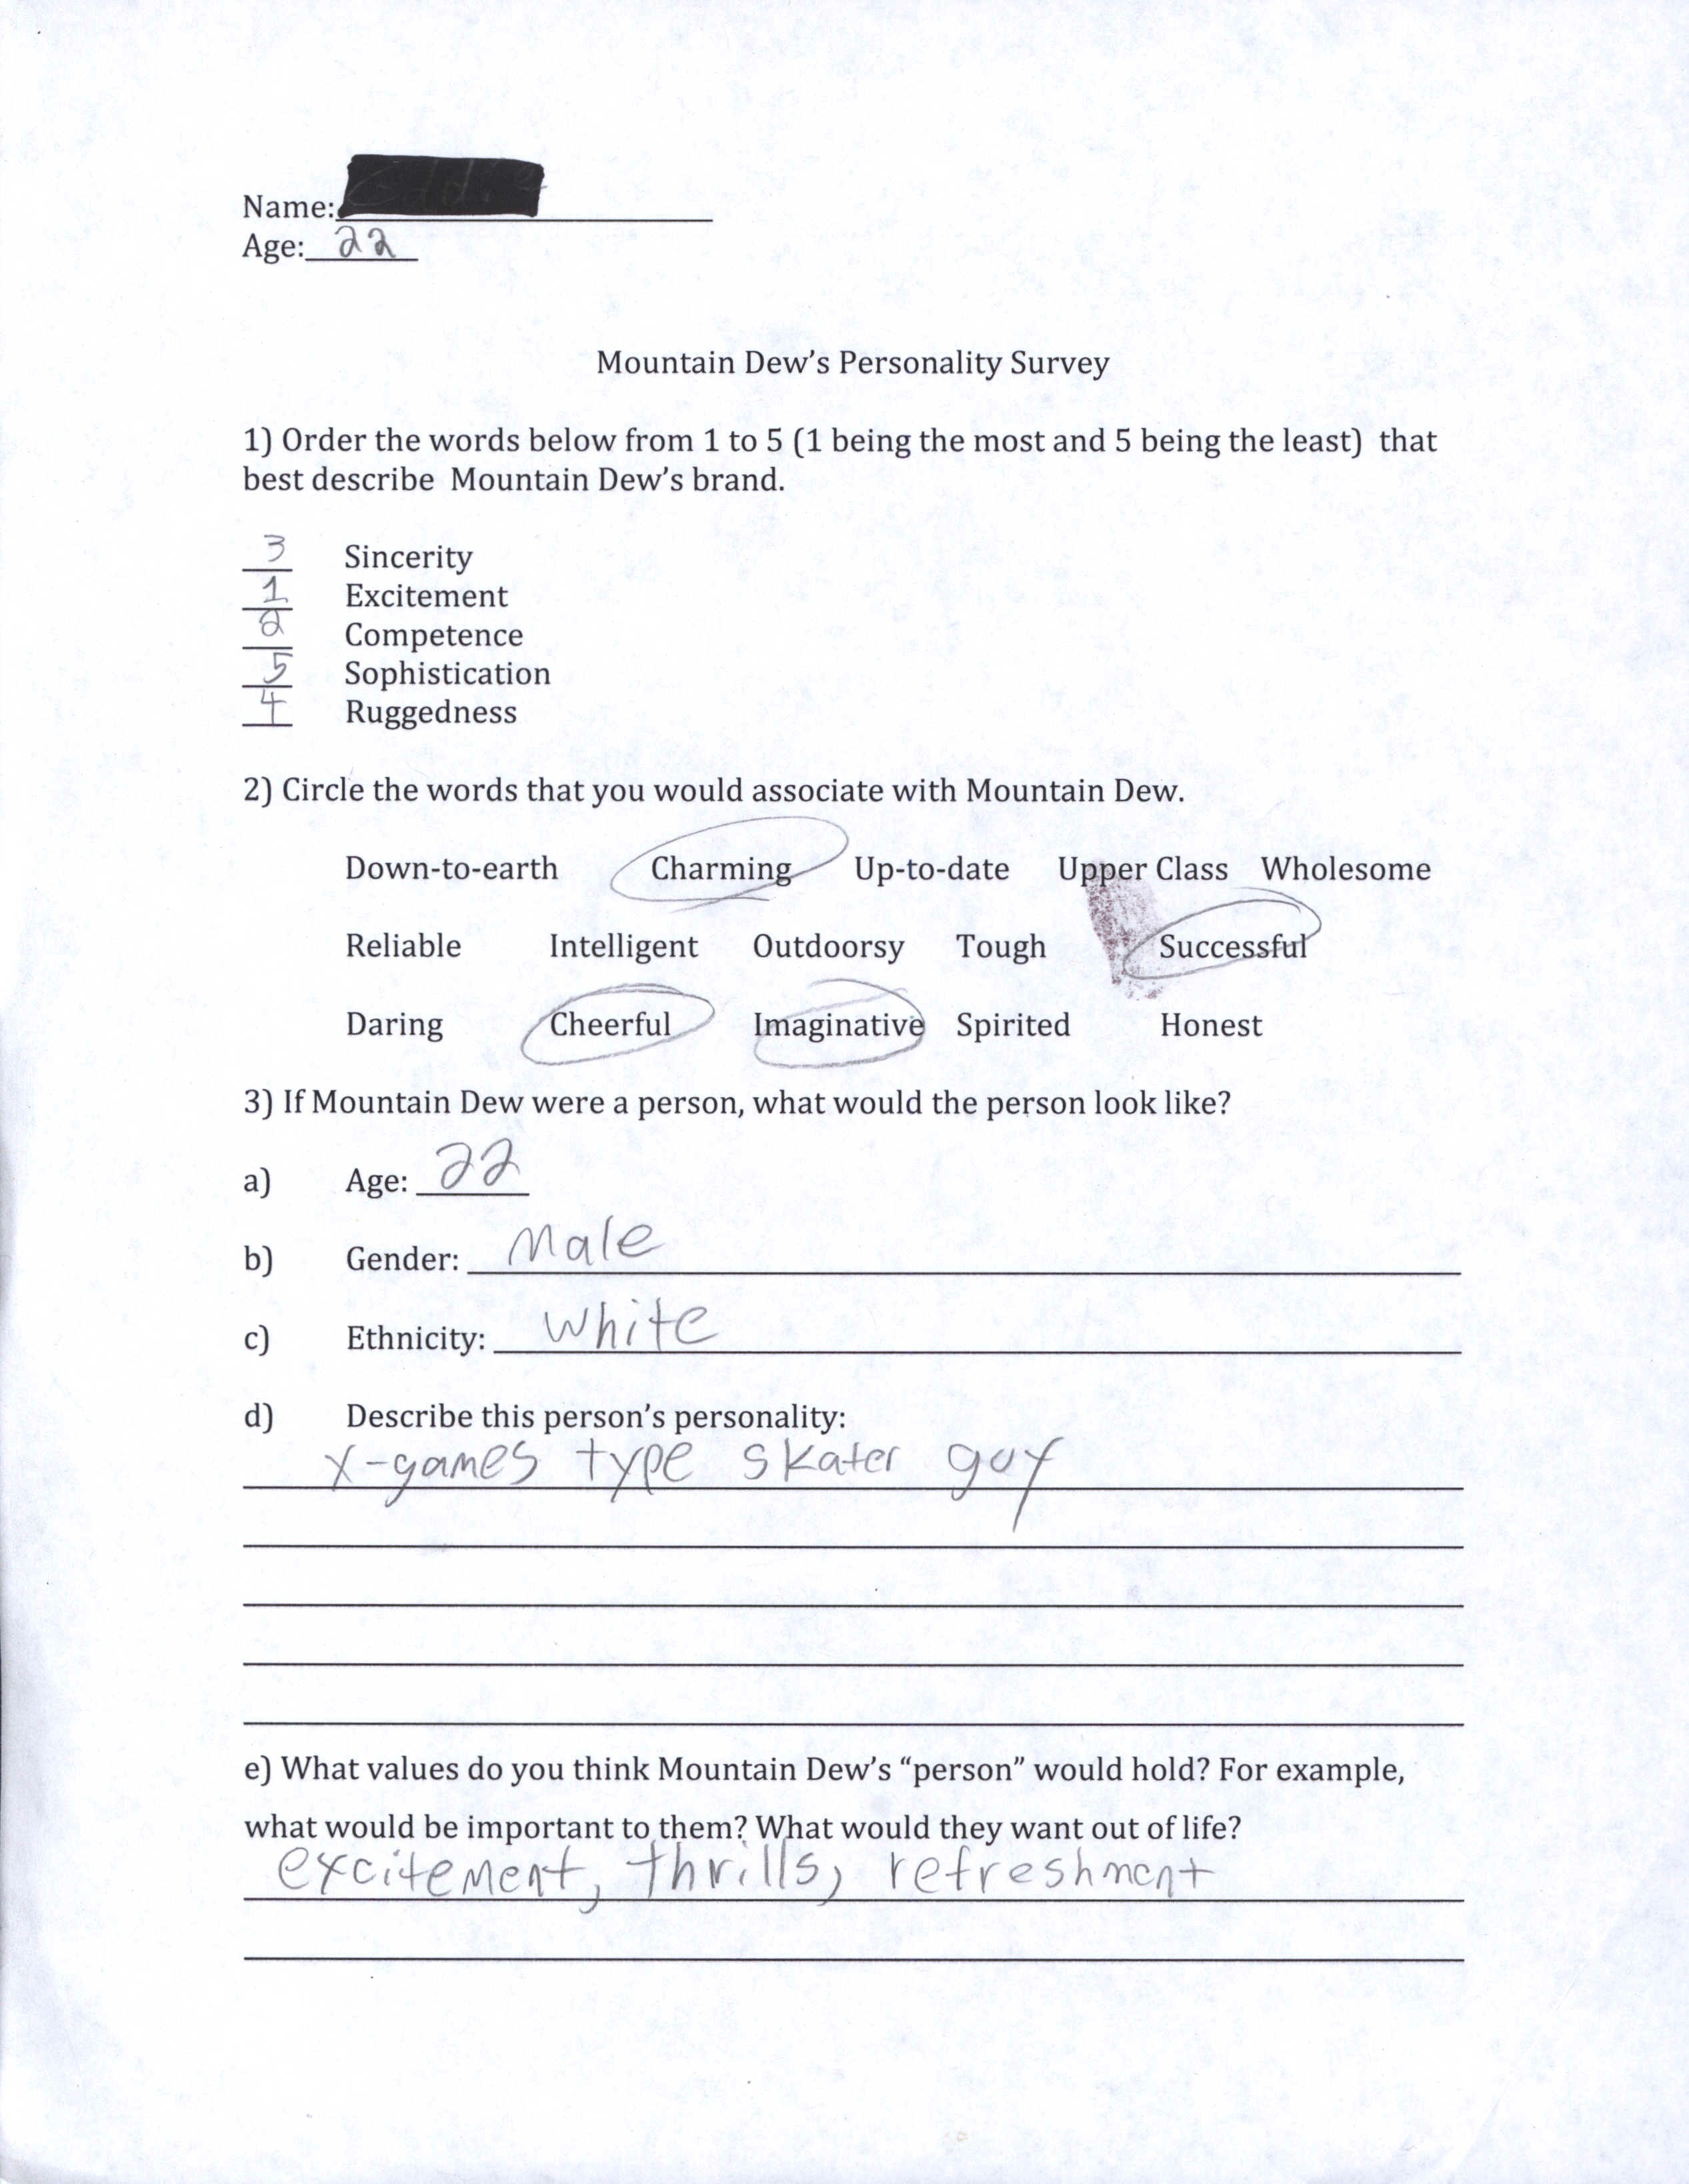 Name:
Age: 22
Mountain Dew's Personality Survey
1) Order the words below from 1 to 5 (1 being the most and 5 being the least) that
best describe Mountain Dew's brand.
3 Sincerity
1 Excitement
2 Competence
5 Sophistication
4 Ruggedness
2) Circle the words that you would associate with Mountain Dew.
Down-to-earth Charming Up-to-date Upper Class Wholesome
Reliable Intelligent Outdoorsy Tough Successful
Daring Cheerful Imaginative Spirited Honest
3) If Mountain Dew were a person, what would the person look like?
a) Age: 22
b) Gender: Male
c) Ethnicity: white
d) Describe this person's personality:
x-games type skater guy
e) What values do you think Mountain Dew's “person” would hold? For example,
what would be important to them? What would they want out of life?
excitement, thrills, refreshment